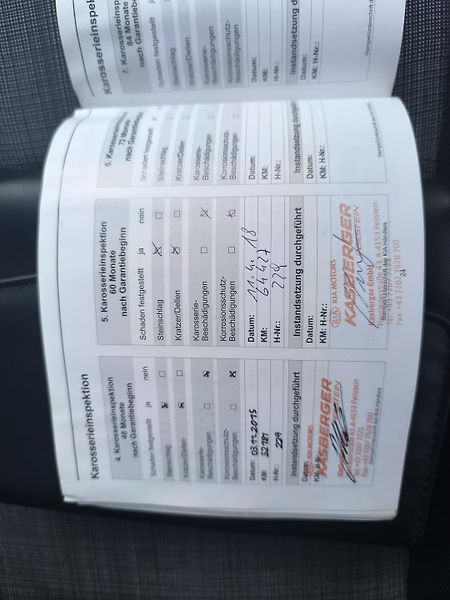 Karosserieinspektion
4. Karosserieinspektion
48 Monate
nach Garantiebeginn
Schaden festgestellt ja nein
Steinschlag
Kratzer/Dellen
Karosserie-
Beschädigungen
Korrosionsschutz-
Beschädigungen
Datum: 03.11.2015
KM: 52181
H-Nr.: 229
Instandsetzung durchgeführt
Datum:
KM:
KIA MOTORS
KASBERGER
5. Karosserieinspektion
60 Monate
nach Garantiebeginn
Schaden festgestellt ja nein
Steinschlag
Kratzer/Dellen
Karosserie-
Beschädigungen
Korrosionsschutz-
Beschädigungen
Datum:
KM: 64427
H-Nr.: 229
Instandsetzung durchgeführt
Datum:
KM: H-Nr.:
KIA MOTORS
KASBERGER
Kasberger GmbH
24
6. Karosserieinspektion
72 Monate
nach Garantiebeginn
Schaden festgestellt
Steinschlag
Kratzer/Dellen
Karosserie-
Beschädigungen
Korrosionsschutz-
Beschädigungen
Datum:
KM:
H-Nr.:
Instandsetzung durchgeführt
Datum:
KM:
H-Nr.:
Karosserieinspektion
7. Karosserieinspektion
84 Monate
nach Garantiebeginn
Schaden festgestellt
Steinschlag
Kratzer/Dellen
Karosserie-
Beschädigungen
Korrosionsschutz-
Beschädigungen
Datum:
KM:
H-Nr.:
Instandsetzung
Datum:
KM:
H-Nr.: